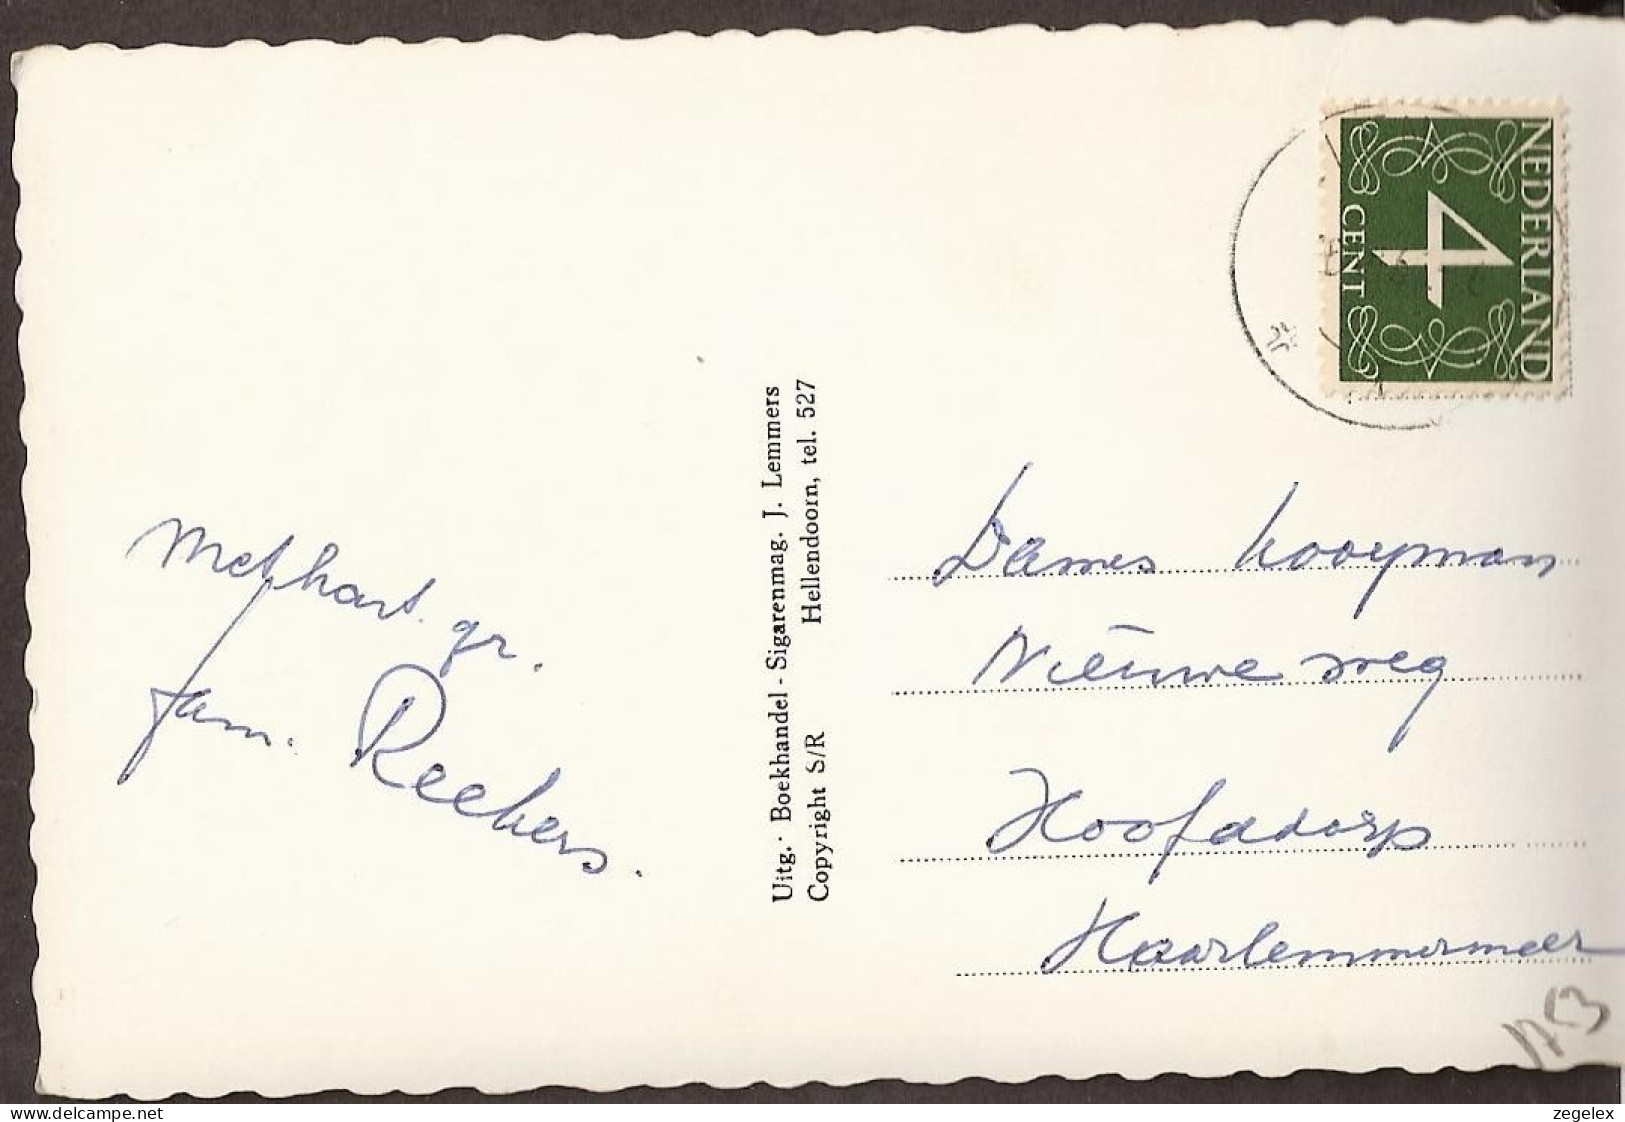 Met hart. gr.
fam. Reekers.
Uitg.: Boekhandel - Sigarenmag. J. Lemmers
Copyright S/R Hellendoorn, tel. 527
NEDERLAND
4
CENT
Dames Kooyman
Nieuwe weg
Hoofddorp
Haarlemmermeer
delcampe.net
zegelex